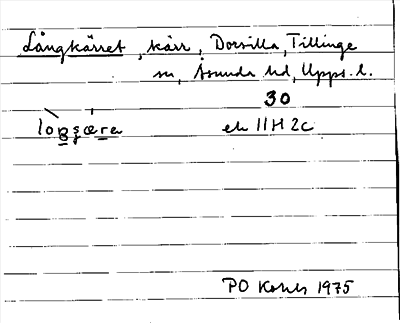 Långkärret, kärr, Dorsilla, Tillinge
sn, Åsunda hd, Upps. l.
30
loŋʂæra ek 11H 2c
PO 1975